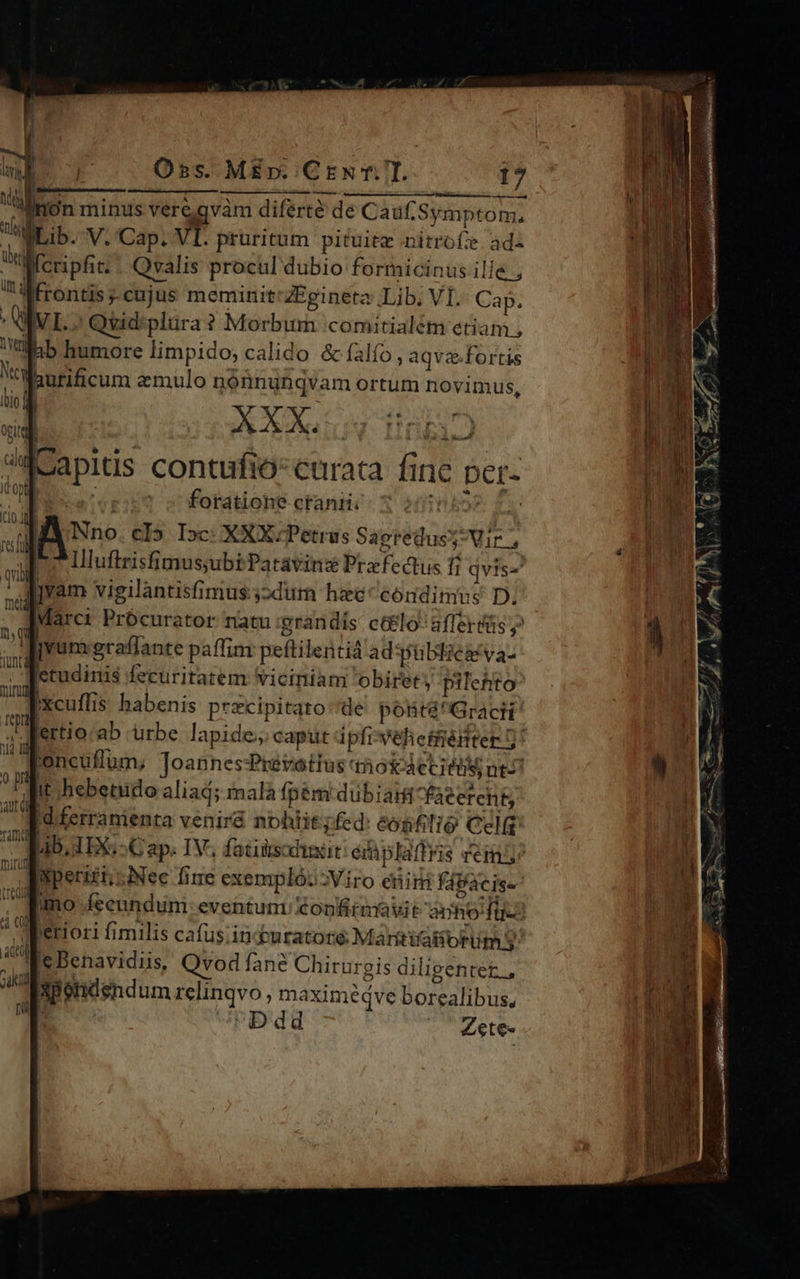 OBS. MED. CENT. I. 17
non minus verè qvàm disertè de Caus. Symptom.
Lib. V. Cap. VI. pruritum pituitæ nitrosæ ad-
scripsit. Qvalis procul dubio formicinus ille,
frontis, cujus meminit Ægineta Lib. VI. Cap.
VI. Qvid plura? Morbum comitialem etiam,
ab humore limpido, calido & salso, aqvæ fortis
aurificum æmulo nonnunqvam ortum novimus,
XXX.
Capitis contusio curata sine per-
foratione cranii.
ANno. cIↃ IↃc. XXX. Petrus Sagredus, Vir,
Illustrissimus, ubi Patavinæ Præfectus si qvis-
qvam vigilantissimus, dum hæc condimus D.
Marci Procurator natu grandis cœlo assertus,
qvum grassante passim pestilentiâ ad publicæ va-
letudinis securitatem viciniam obiret, pilento
excussis habenis præcipitato de ponte Gracii
tertio ab urbe lapide, caput ipsi vehementer
concussum, Joannes Prevotius mox accitus, ne
sit hebetudo aliaq; mala spem dubiam facerent,
ad ferramenta venire noluit, sed consilio Celsi
Lib. IIX. Cap. IV. fatiusduxit emplastris rem
experiri, Nec sine exemplo. Viro enim sagacis-
simo secundum eventum confirmavit anno su-
periori similis casus in curatore Mantuanorum
de Benavidiis, Qvod sanè Chirurgis diligenter,
expendendum relinqvo, maximèqve borealibus,
Ddd Zete-